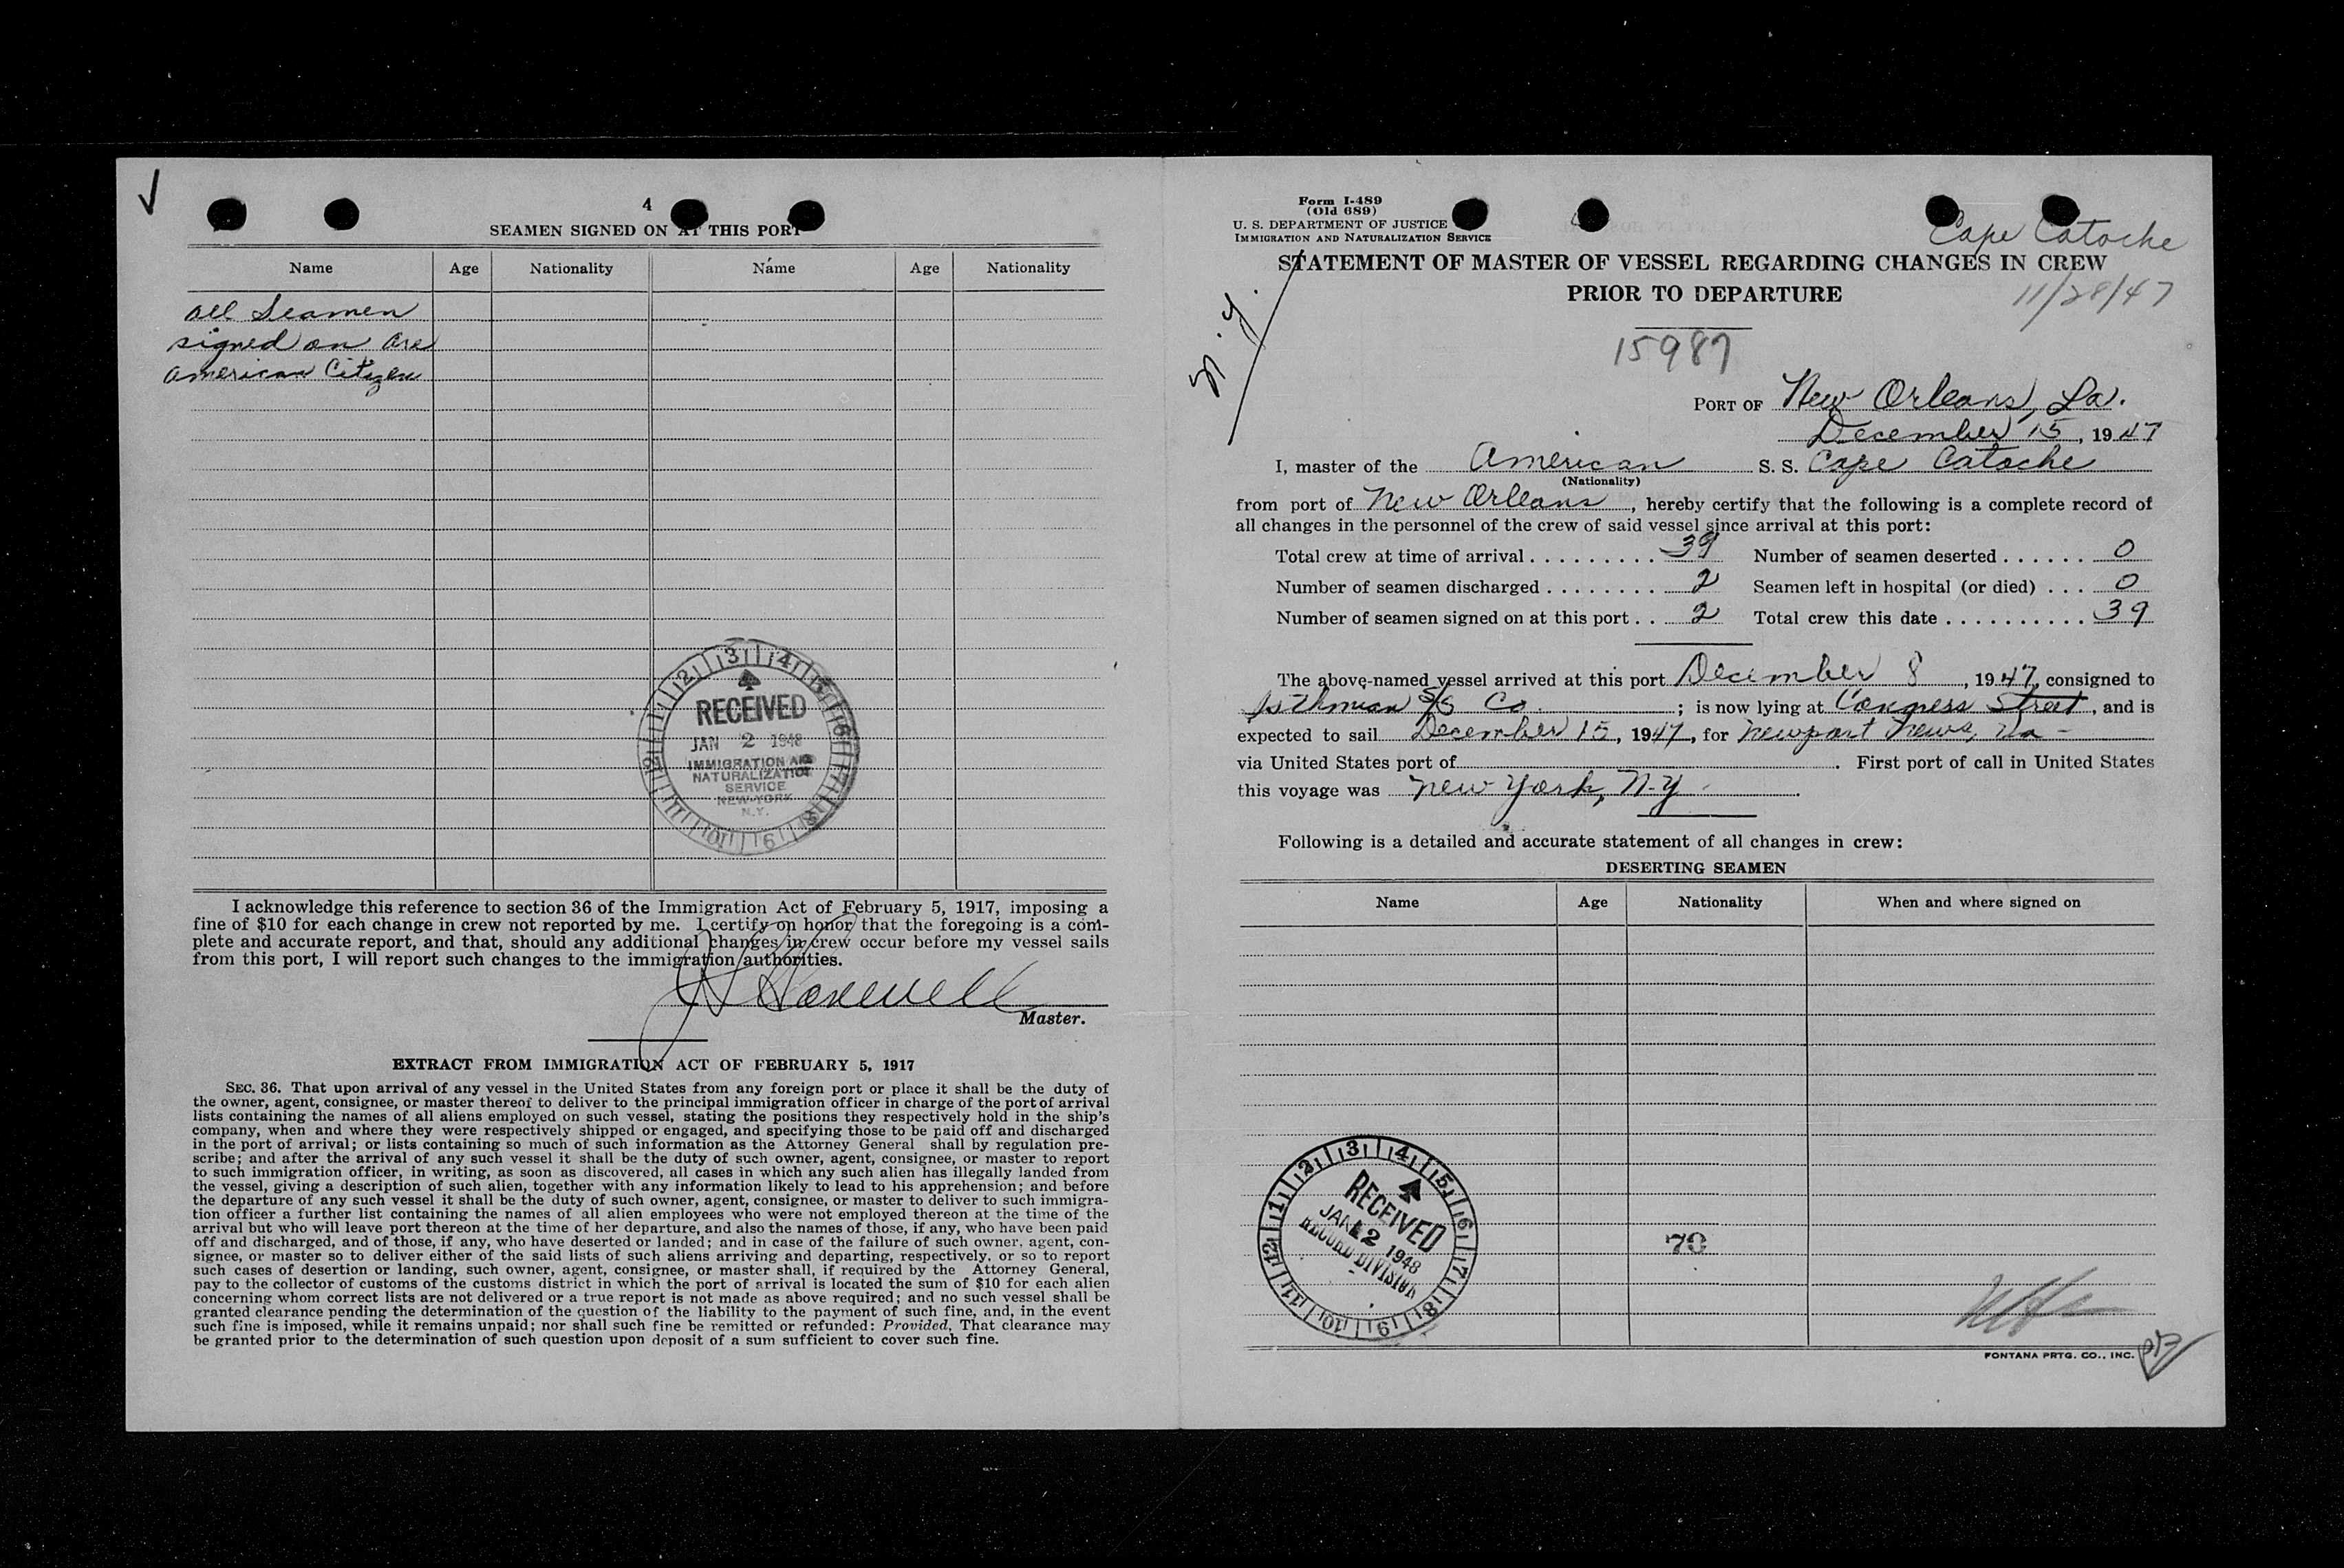 4
SEAMEN SIGNED ON AT THIS PORT
Name Age Nationality Name Age Nationality
All Seamen
signed on are
American Citizen
RECEIVED
JAN 2 1948
IMMIGRATION AND
NATURALIZATION
SERVICE
NEW YORK
N.Y.
I acknowledge this reference to section 36 of the Immigration Act of February 5, 1917, imposing a
fine of $10 for each change in crew not reported by me. I certify on honor that the foregoing is a com-
plete and accurate report, and that, should any additional changes in crew occur before my vessel sails
from this port, I will report such changes to the immigration authorities.
Master.
EXTRACT FROM IMMIGRATION ACT OF FEBRUARY 5, 1917
SEC. 36. That upon arrival of any vessel in the United States from any foreign port or place it shall be the duty of
the owner, agent, consignee, or master thereof to deliver to the principal immigration officer in charge of the port of arrival
lists containing the names of all aliens employed on such vessel, stating the positions they respectively hold in the ship's
company, when and where they were respectively shipped or engaged, and specifying those to be paid off and discharged
in the port of arrival; or lists containing so much of such information as the Attorney General shall by regulation pre-
scribe; and after the arrival of any such vessel it shall be the duty of such owner, agent, consignee, or master to report
to such immigration officer, in writing, as soon as discovered, all cases in which any such alien has illegally landed from
the vessel, giving a description of such alien, together with any information likely to lead to his apprehension; and before
the departure of any such vessel it shall be the duty of such owner, agent, consignee, or master to deliver to such immigra-
tion officer a further list containing the names of all alien employees who were not employed thereon at the time of the
arrival but who will leave port thereon at the time of her departure, and also the names of those, if any, who have been paid
off and discharged, and of those, if any, who have deserted or landed; and in case of the failure of such owner, agent, con-
signee, or master so to deliver either of the said lists of such aliens arriving and departing, respectively, or so to report
such cases of desertion or landing, such owner, agent, consignee, or master shall, if required by the Attorney General,
pay to the collector of customs of the customs district in which the port of arrival is located the sum of $10 for each alien
concerning whom correct lists are not delivered or a true report is not made as above required; and no such vessel shall be
granted clearance pending the determination of the question of the liability to the payment of such fine, and, in the event
such fine is imposed, while it remains unpaid; nor shall such fine be remitted or refunded: Provided, That clearance may
be granted prior to the determination of such question upon deposit of a sum sufficient to cover such fine.
Form I-489
(Old 689)
U. S. DEPARTMENT OF JUSTICE
IMMIGRATION AND NATURALIZATION SERVICE
Cape Catoche
STATEMENT OF MASTER OF VESSEL REGARDING CHANGES IN CREW
PRIOR TO DEPARTURE
11/28/47
N.Y.
15987
PORT OF New Orleans, La.
December 15, 1947
I, master of the American S. S. Cape Catoche
(Nationality)
from port of New Orleans, hereby certify that the following is a complete record of
all changes in the personnel of the crew of said vessel since arrival at this port:
Total crew at time of arrival . . . . . . . . . 39 Number of seamen deserted . . . . . . 0
Number of seamen discharged . . . . . . . . 2 Seamen left in hospital (or died) . . . 0
Number of seamen signed on at this port . . 2 Total crew this date . . . . . . . . . . 39
The above-named vessel arrived at this port December 8, 1947, consigned to
Isthmian S/S Co. ; is now lying at Congress Street, and is
expected to sail December 15, 1947, for Newport News, Va -
via United States port of . First port of call in United States
this voyage was New York, N-Y - .
Following is a detailed and accurate statement of all changes in crew:
DESERTING SEAMEN
Name Age Nationality When and where signed on
RECEIVED
JAN 12 1948
RECORD DIVISION
70
FONTANA PRTG. CO., INC.